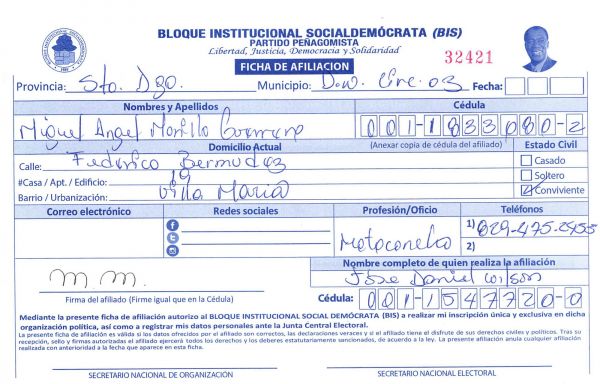 BLOQUE INSTITUCIONAL SOCIALDEMÓCRATA (BIS)
PARTIDO PEÑAGOMISTA
Libertad, Justicia, Democracia y Solidaridad
32421
FICHA DE AFILIACION
Provincia: Sto. Dgo. Municipio: D.N. Circ. 03 Fecha:
Nombres y Apellidos Cédula
Miguel Angel Morillo 001-1833080-2
Domicilio Actual (Anexar copia de cédula del afiliado) Estado Civil
Calle: Federico Bermudez Casado
#Casa / Apt. / Edificio: 19 Soltero
Barrio / Urbanización: Villa Maria Conviviente
Correo electrónico Redes sociales Profesión/Oficio Teléfonos
Motoconcho 1) 829-475-2455
2)
Nombre completo de quien realiza la afiliación
m. m. Jose Daniel Wilson
Firma del afiliado (Firme igual que en la Cédula) Cédula: 001-1547720-0
Mediante la presente ficha de afiliación autorizo al BLOQUE INSTITUCIONAL SOCIAL DEMÓCRATA (BIS) a realizar mi inscripción única y exclusiva en dicha
organización política, así como a registrar mis datos personales ante la Junta Central Electoral.
La presente ficha de afiliación es válida si los datos ofrecidos por el afiliado son correctos, las declaraciones veraces y si el afiliado tiene el disfrute de sus derechos civiles y políticos. Tras su
recepción, sello y firmas autorizadas el afiliado ejercerá todos los derechos y los deberes estatutariamente sancionados, de acuerdo a la ley. La presente afiliación anula cualquier afiliación
realizada con anterioridad a la fecha que aparece en esta ficha.
SECRETARIO NACIONAL DE ORGANIZACIÓN SECRETARIO NACIONAL ELECTORAL